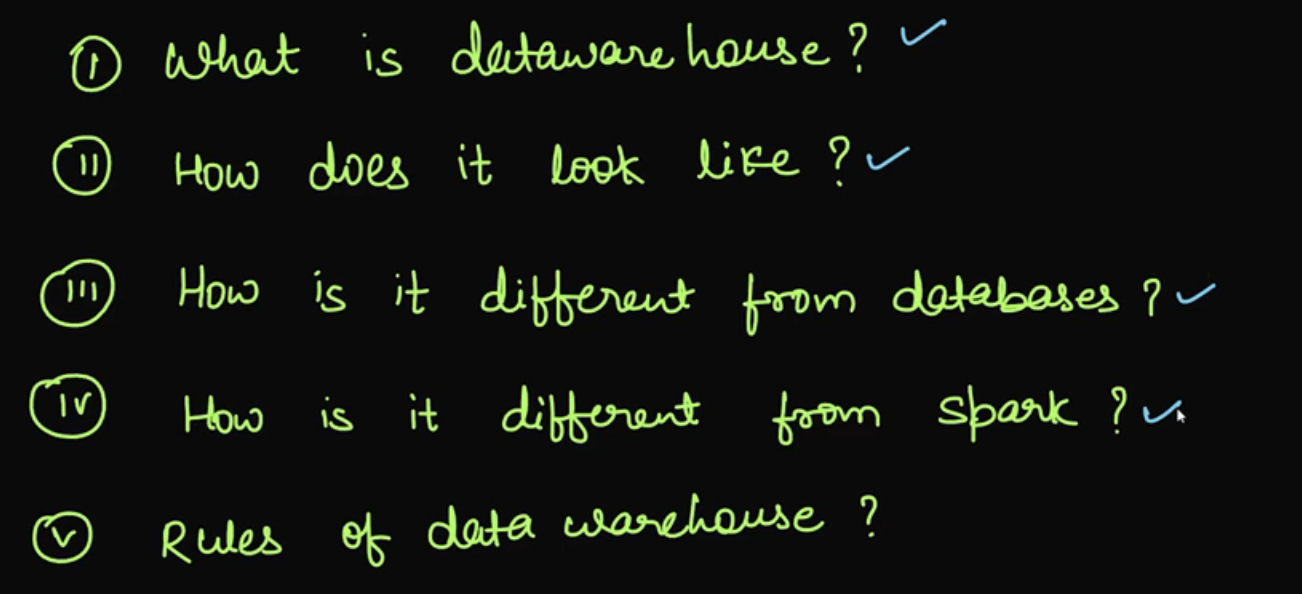 (i) What is datawarehouse? ✓
(ii) How does it look like? ✓
(iii) How is it different from databases? ✓
(iv) How is it different from spark? ✓
(v) Rules of data warehouse?